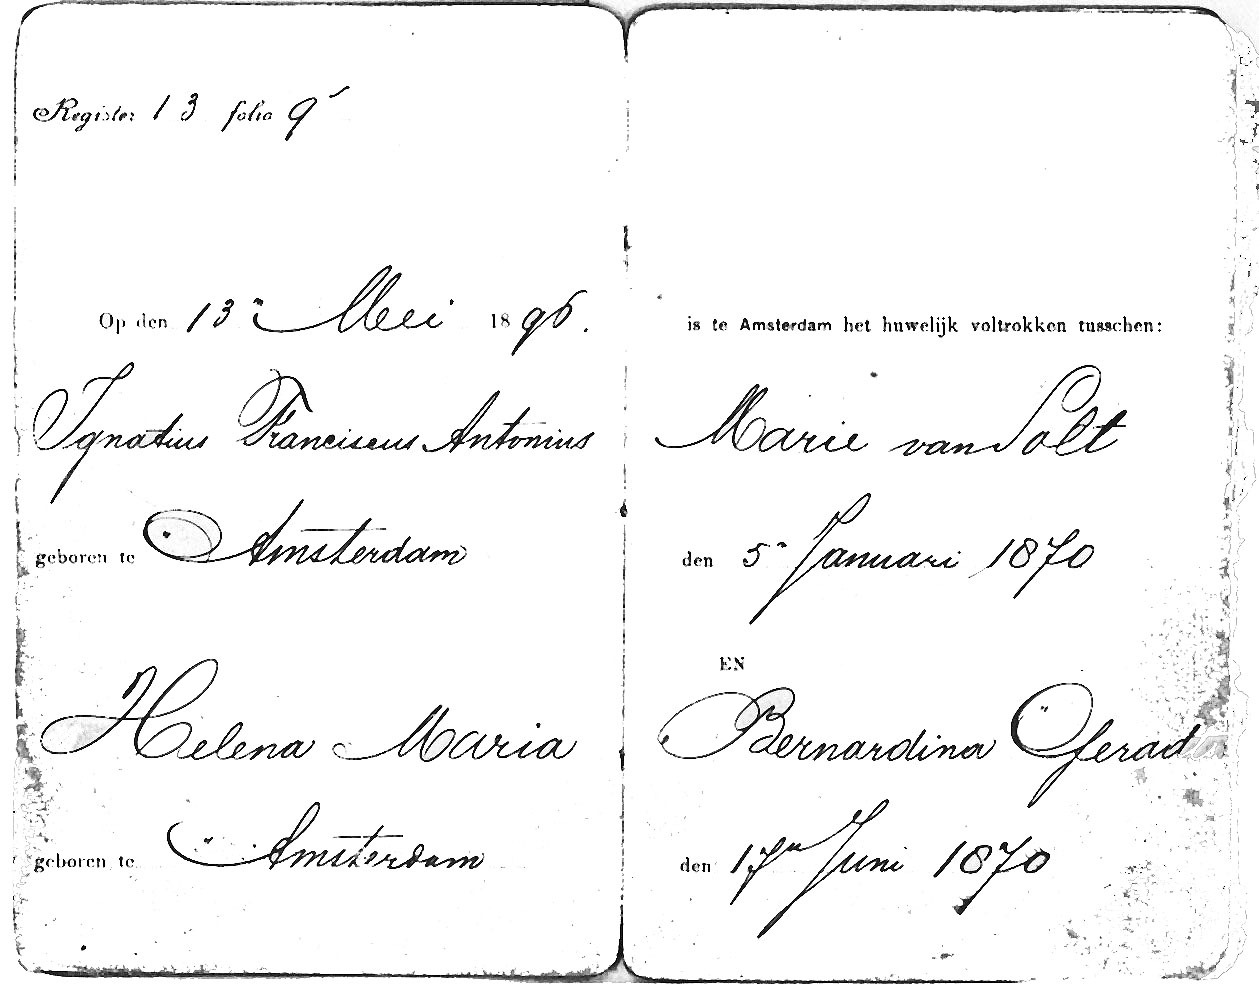 Register 13 folio 9
Op den 13n Mei 1896. is te Amsterdam het huwelijk voltrokken tusschen:
Ignatius Franciscus Antonius Marie van Solt
geboren te Amsterdam den 5n Januari 1870
EN
Helena Maria Bernardina Gerad
geboren te Amsterdam den 17n Juni 1870